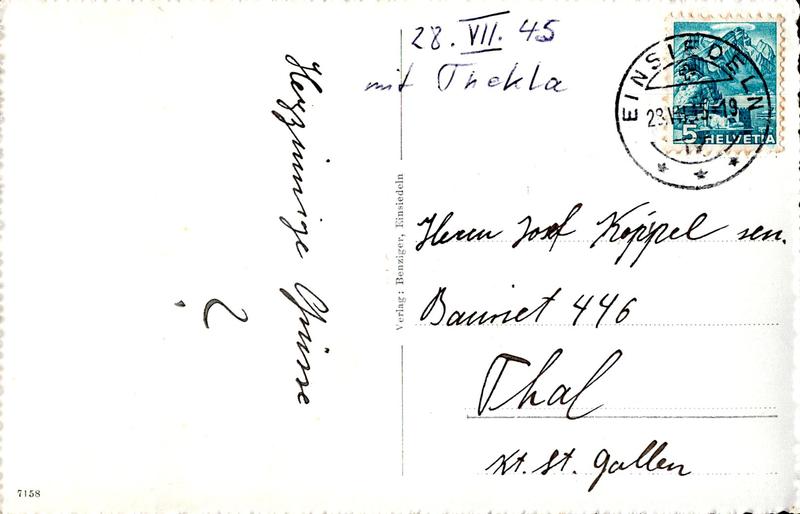 28. VII. 45
mit Thekla
EINSIEDELN
28.VII.45-19
5 HELVETIA
Herrn Josef Köppel sen.
Bauriet 446
Thal
Kt. St. Gallen
Herzinnige Grüsse
Verlag: Benziger, Einsiedeln
7158